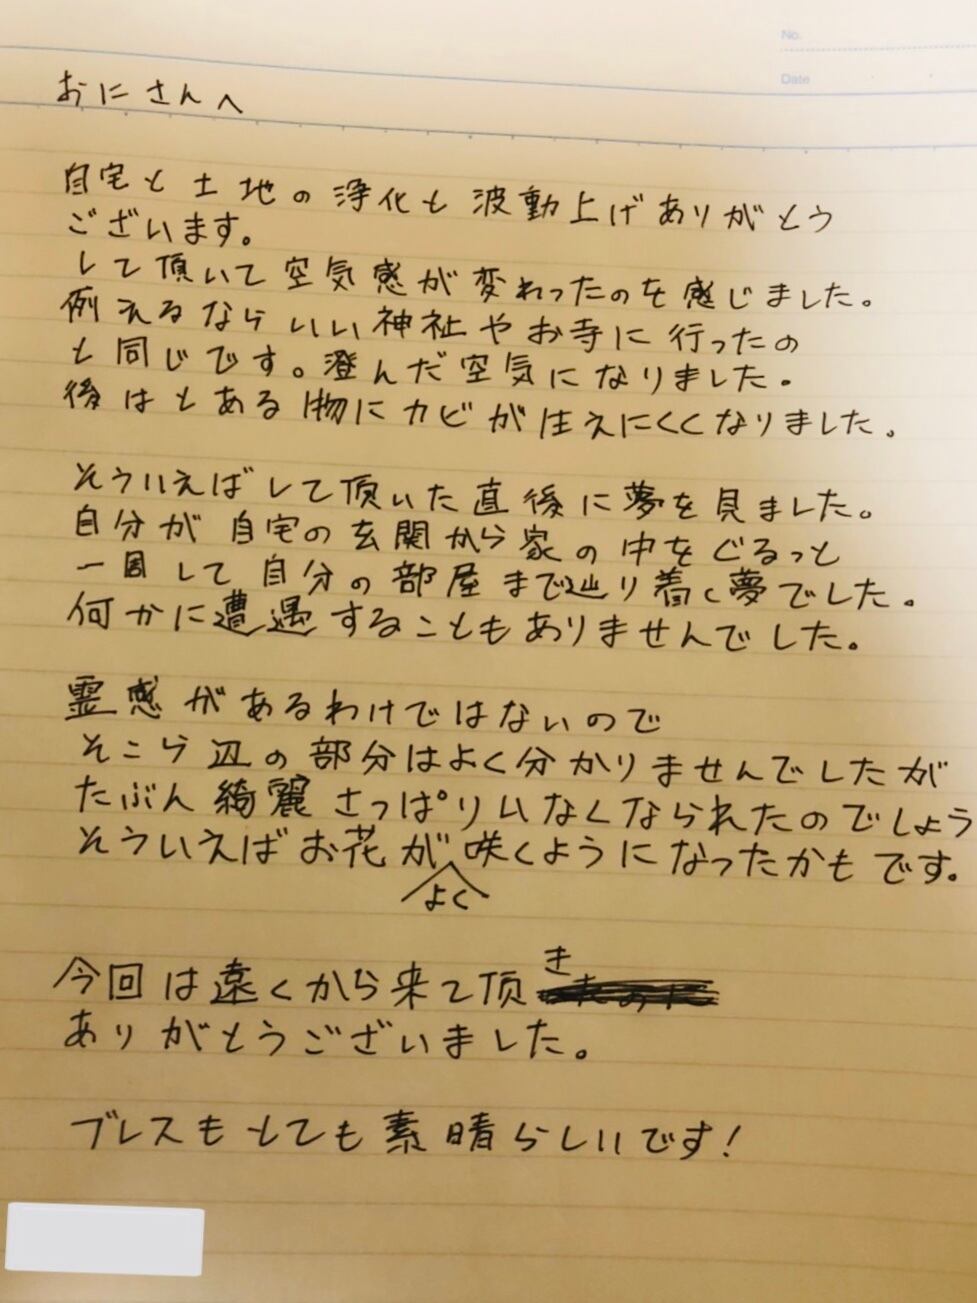 No.
Date
おにさんへ
自宅と土地の浄化も波動上げありがとう
ございます。
して頂いて空気感が変わったのを感じました。
例えるならいい神社やお寺に行ったの
と同じです。澄んだ空気になりました。
後はとある物にカビが生えにくくなりました。
そういえばして頂いた直後に夢を見ました。
自分が自宅の玄関から家の中をぐるっと
一周して自分の部屋まで辿り着く夢でした。
何かに遭遇することもありませんでした。
霊感があるわけではないので
そこら辺の部分はよく分かりませんでしたが
たぶん綺麗さっぱりいなくなられたのでしょう
そういえばお花がよく咲くようになったかもです。
今回は遠くから来て頂き
ありがとうございました。
ブレスもとても素晴らしいです!